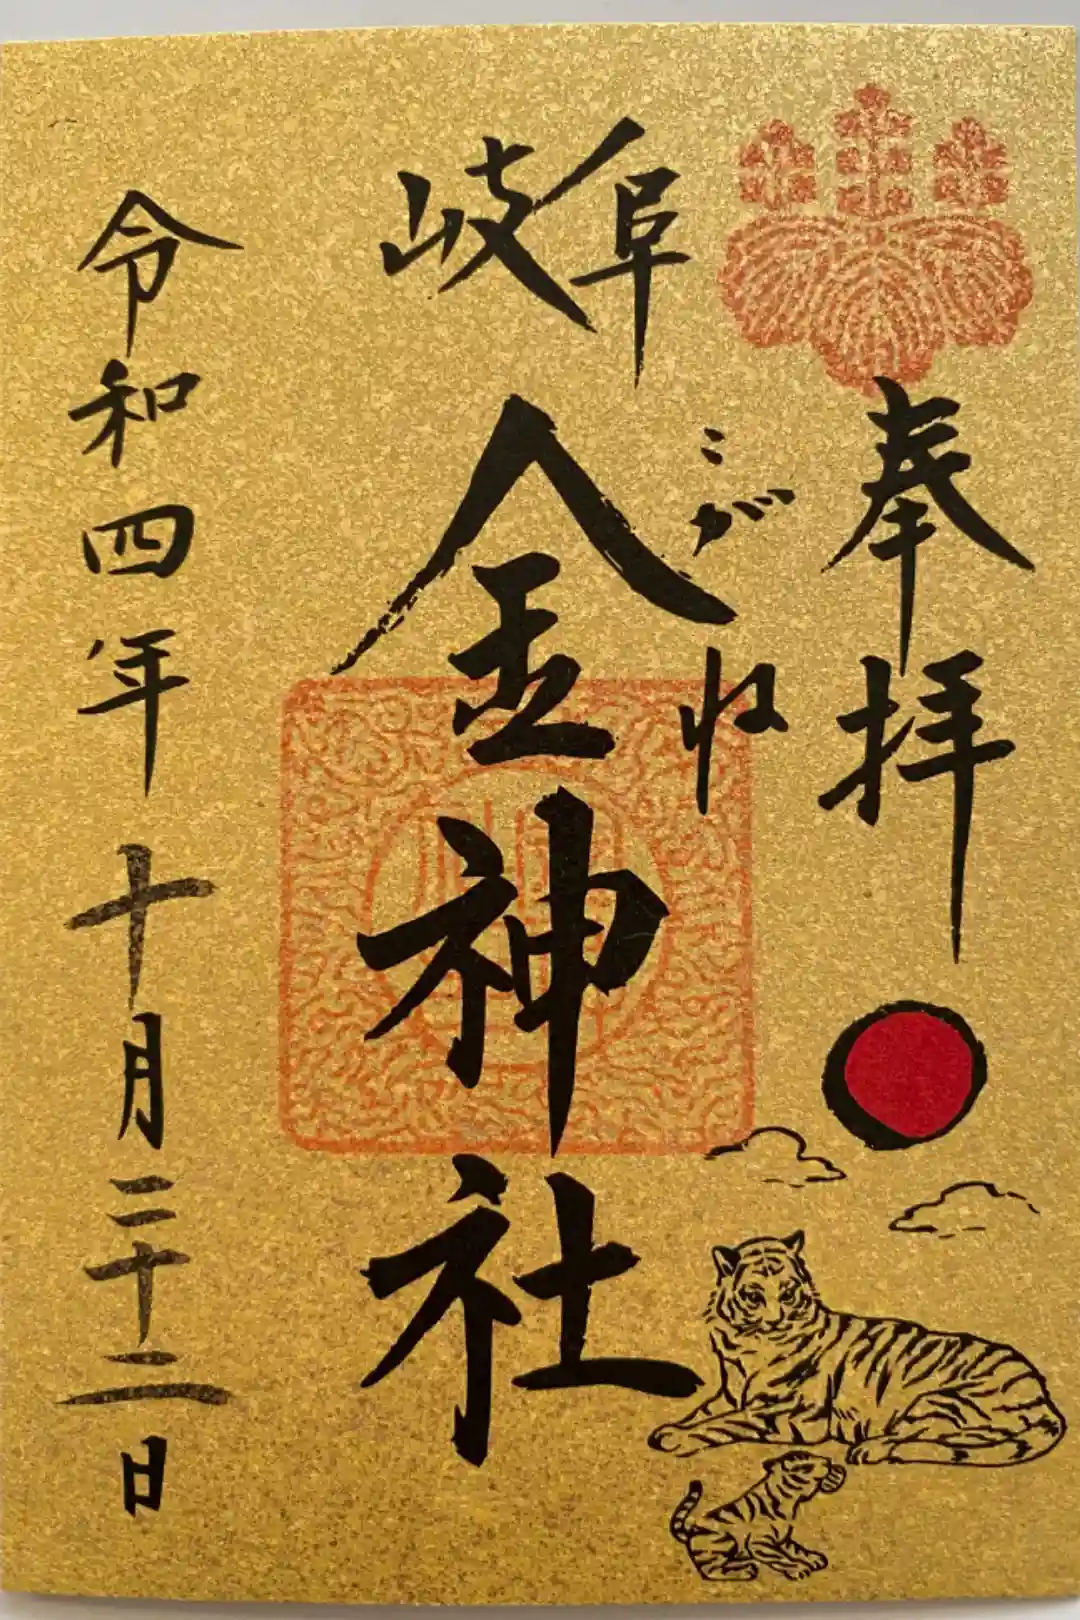 奉拝
岐阜
こがね
金神社
令和四年十月二十二日